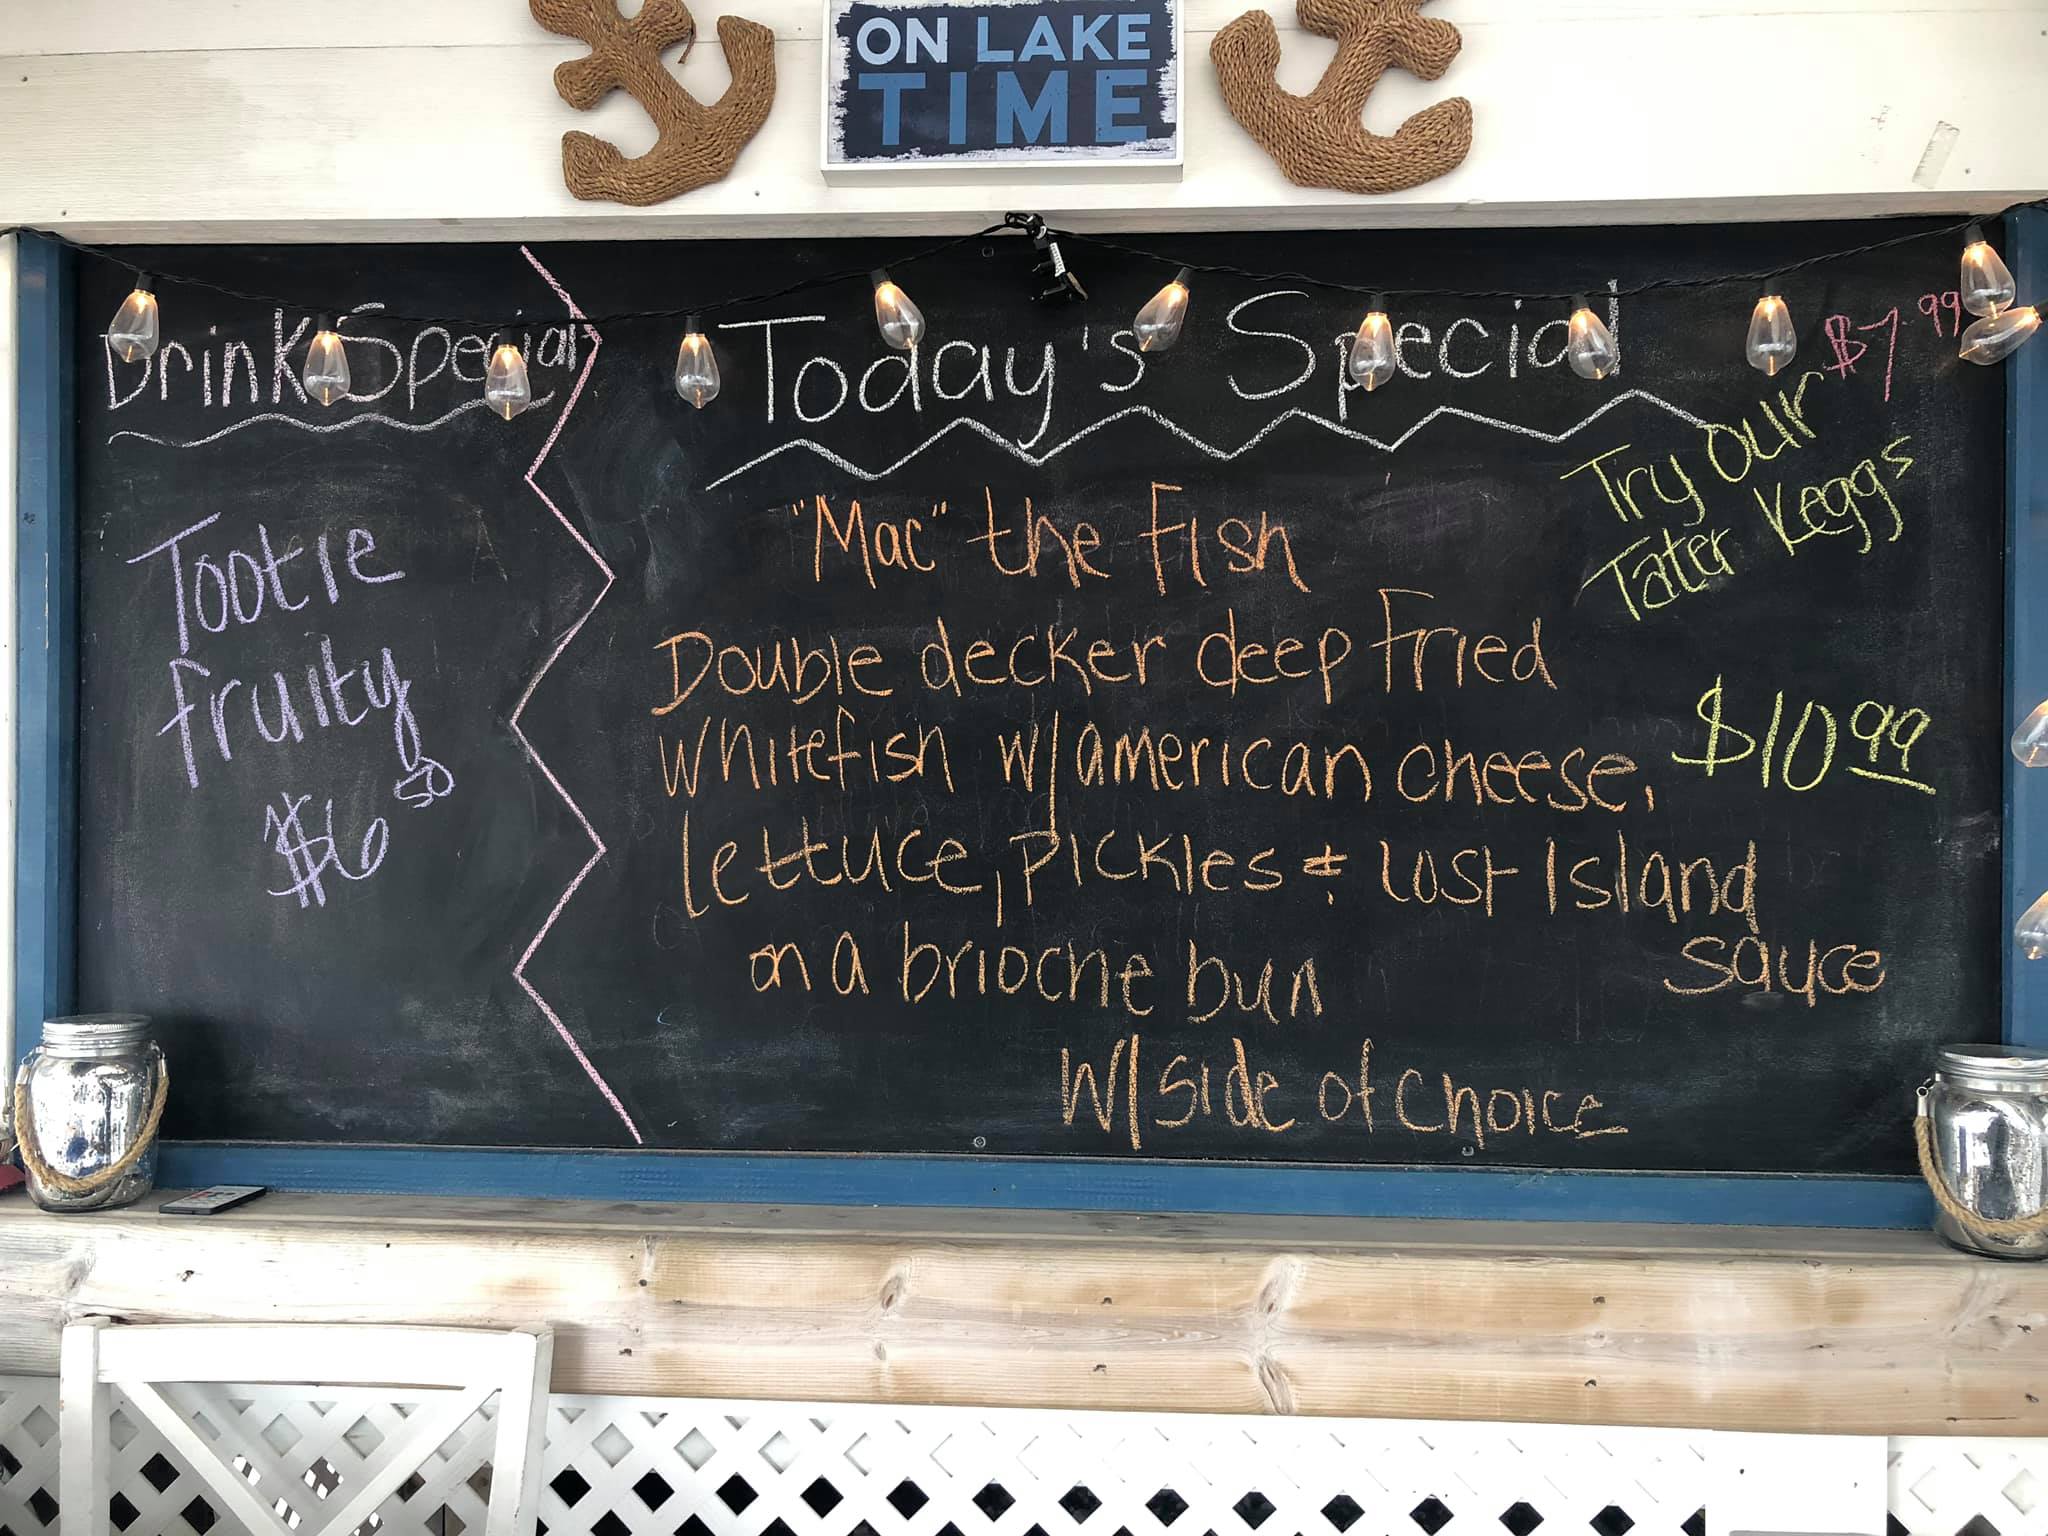 ON LAKE
TIME
Drink Special
Tootie
fruity
$6 50
Today's Special
"Mac" the Fish
Double decker deep fried
whitefish w/american cheese,
lettuce, pickles & Lost Island
sauce
on a brioche bun
w/side of choice
$7.99
Try our
Tater Keggs
$10 99